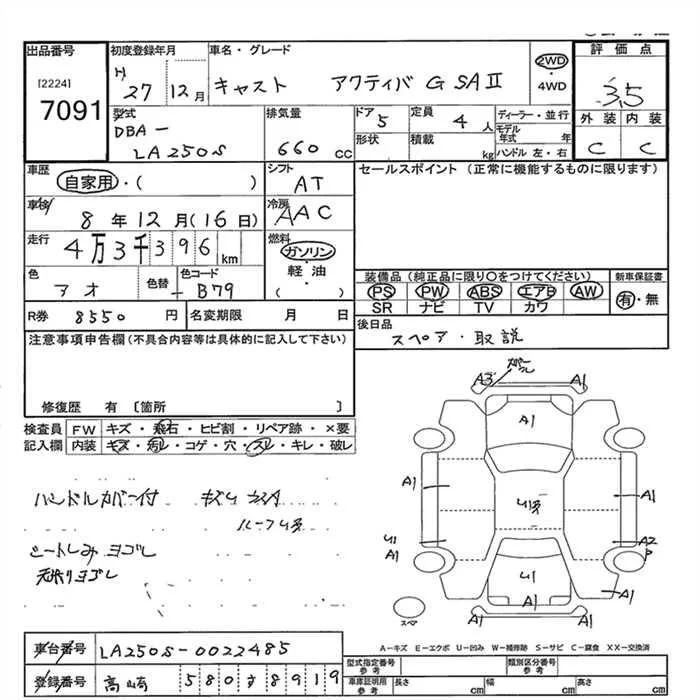 出品番号
[2224]
7091
初度登録年月
H 27 12月
車名・グレード
キャスト アクティバ G SAⅡ
2WD・4WD
評価点
3.5
外装 内装
C C
型式
DBA-
LA250S
排気量
660 cc
ドア
5
形状
定員
4人
積載
kg
ディーラー・並行
モデル年式 年
ハンドル 左・右
車歴
自家用・( )
シフト
AT
セールスポイント (正常に機能するものに限ります)
車検
8年12月(16日)
冷房
AAC
走行
4万3千396km
燃料
ガソリン・軽油・( )
色
アオ
色替
色コード
B79
装備品(純正品に限り○をつけてください)
PS PW ABS エアB AW
SR ナビ TV カワ
新車保証書
有・無
R券 8550円
名変期限 月 日
後日品
スペア・取説
注意事項申告欄(不具合内容等は具体的に記入して下さい)
修復歴 有〔箇所 〕
検査員記入欄
FW キズ・飛石・ヒビ割・リペア跡・×要
内装 キズ・汚レ・コゲ・穴・スレ・キレ・破レ
ハンドルカバー付
シートしみ ヨゴレ
天張りヨゴレ
A3 A1
A1
A1 A1
U1 A1 A2 P
U1
A1
スペア
A-キズ E-エクボ U-凹み W-補修跡 S-サビ C-腐食 XX-交換済
車台番号 LA250S-0022485
登録番号 高崎 580す8919
型式指定番号 参考
類別区分番号 参考
車庫証明用 参考 長さ cm 幅 cm 高さ cm